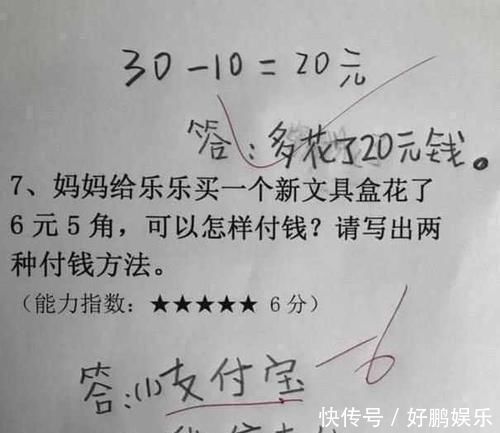 30-10=20元
答:多花了20元钱。
7、妈妈给乐乐买一个新文具盒花了
6元5角,可以怎样付钱?请写出两
种付钱方法。
(能力指数:★★★★★ 6分)
答:(1)支付宝
-6
快传号/好鹏娱乐